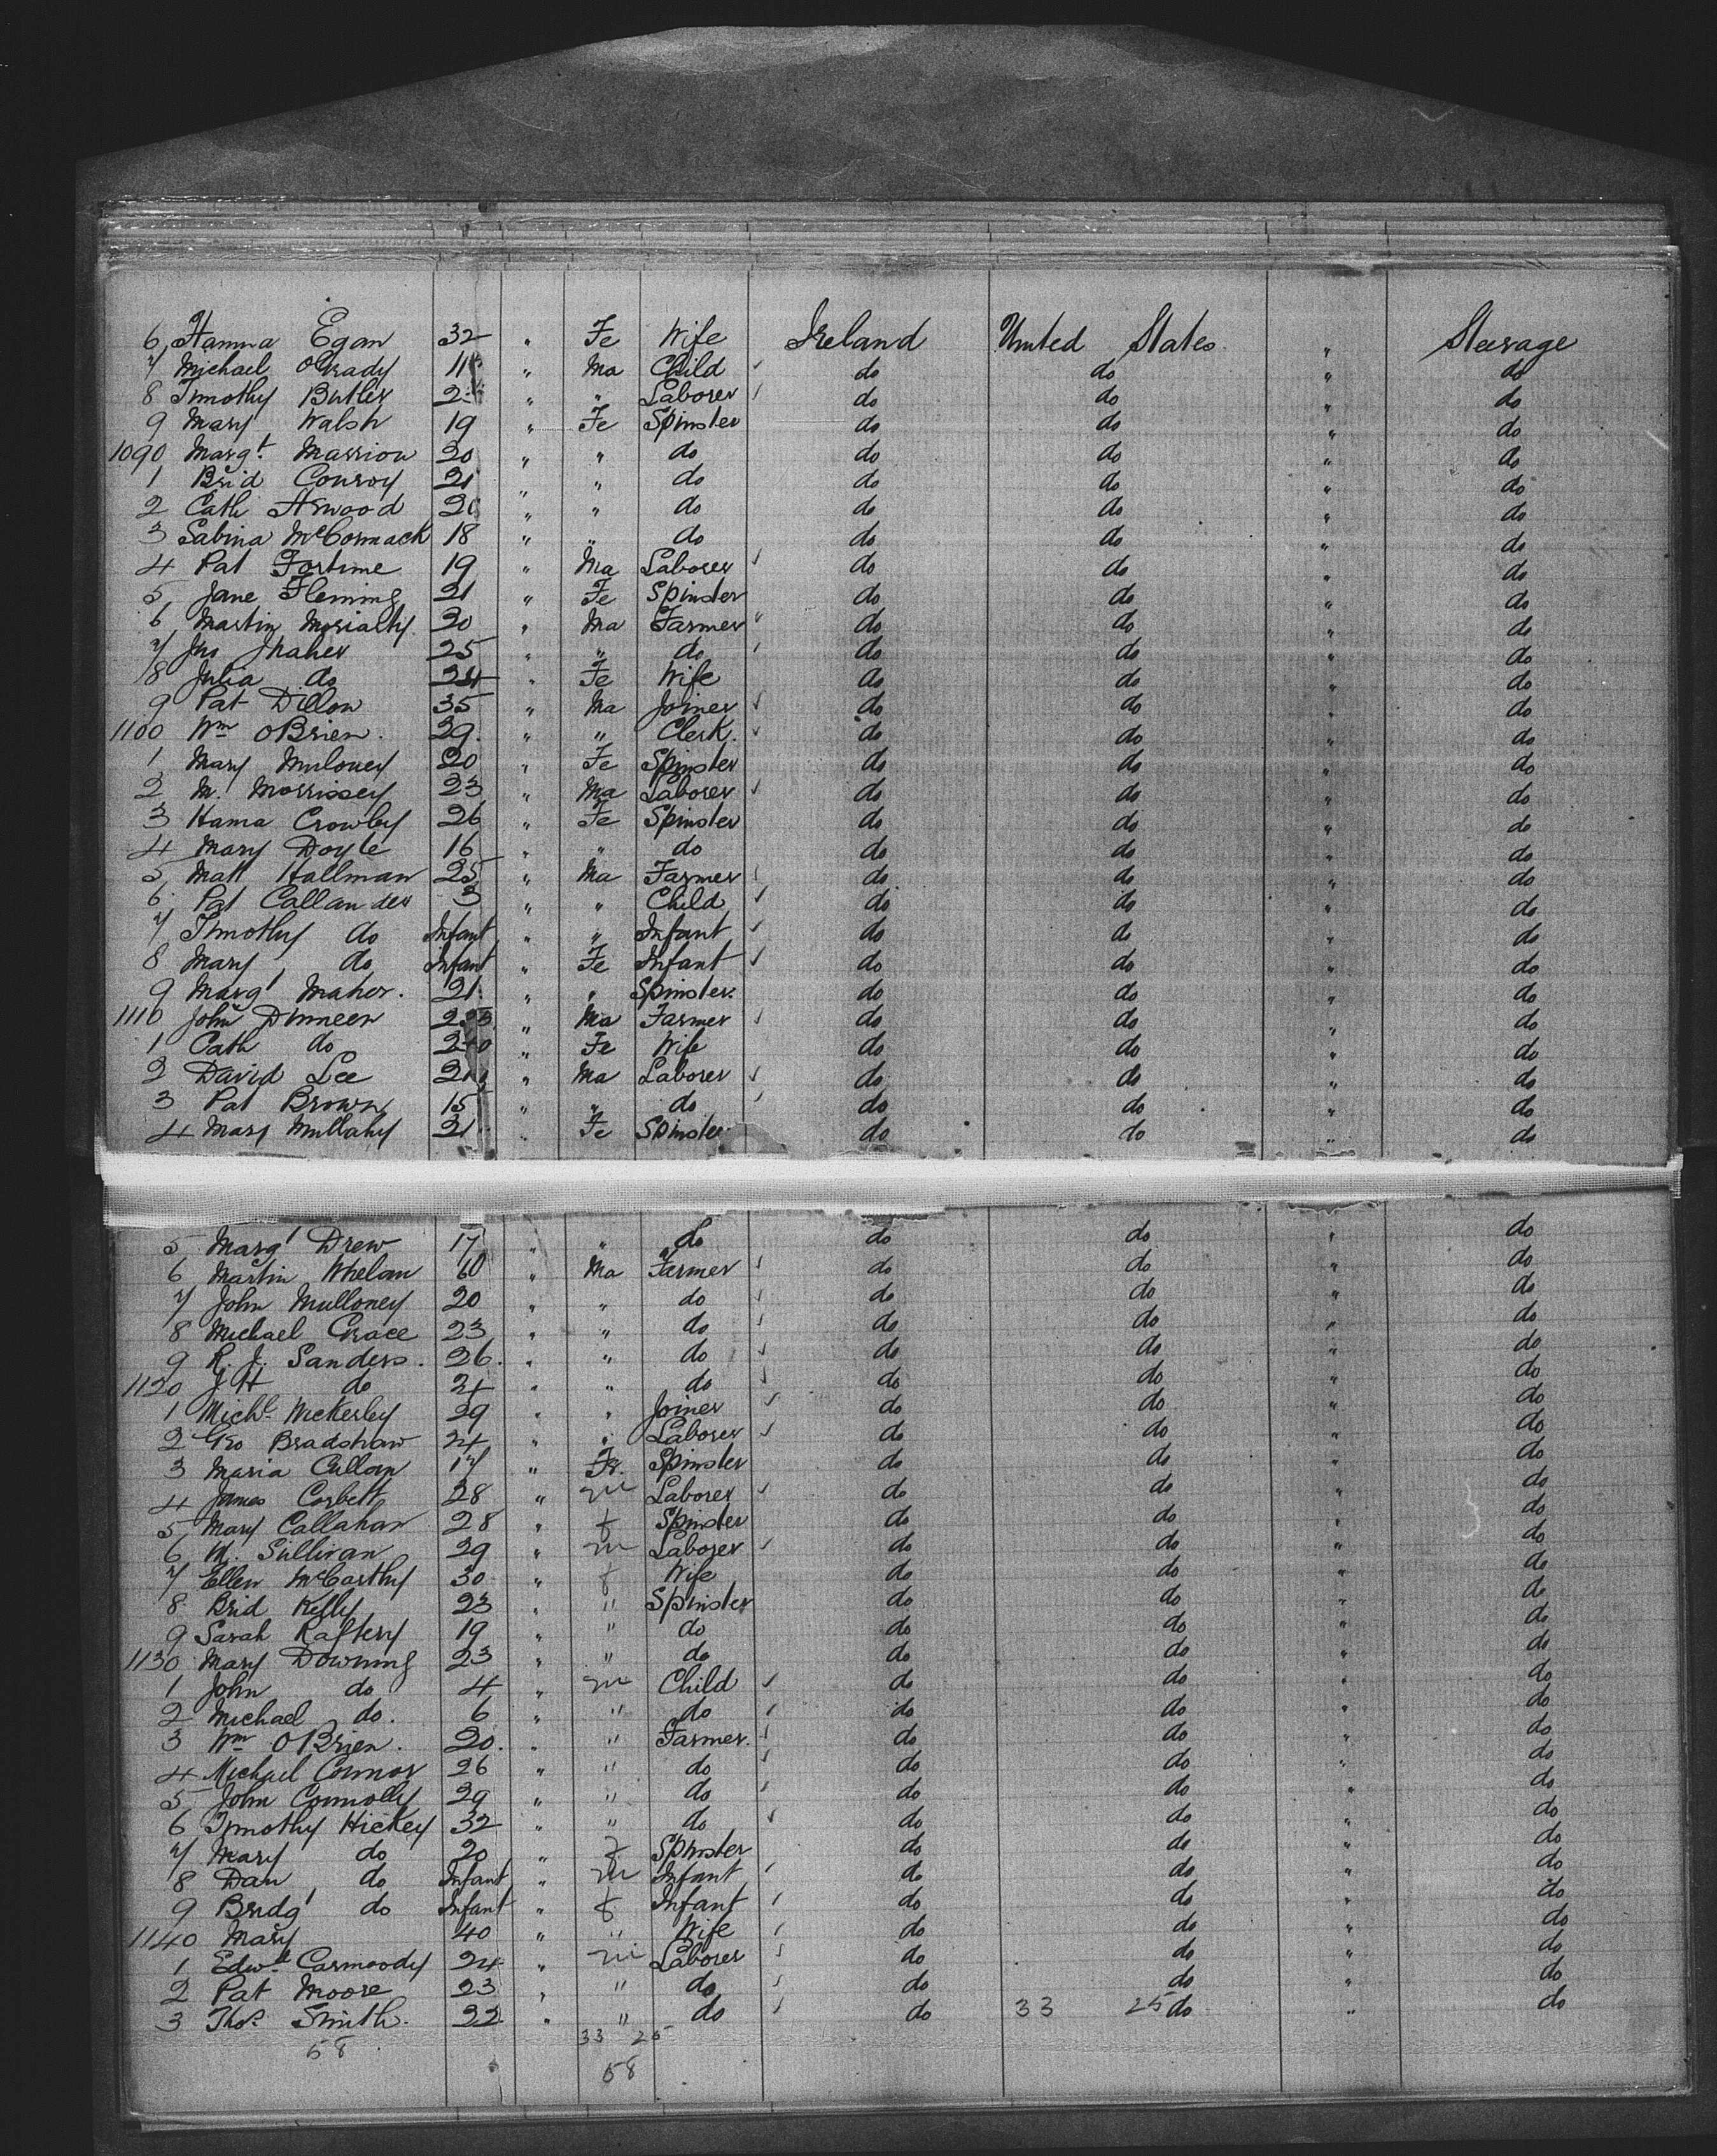 6 Hanna Egan 32 " Fe Wife Ireland United States " Steerage
7 Michael O'Grady 11 " Ma Child do do " do
8 Timothy Butler " " Laborer do do " do
9 Mary Walsh 19 " Fe Spinster do do " do
1090 Margt. Marrion 20 " " do do do " do
1 Brid Conroy 21 " " do do do " do
2 Cath " " do do do " do
3 Sabina McCormack 18 " " do do do " do
4 Pat Fortime 19 " Ma Laborer do do " do
5 Jane Fleming 21 " Fe Spinster do do " do
6 Martin Morialty 30 " Ma Farmer do do " do
7 Jno 25 " " do do do " do
8 Julia do 24 " Fe Wife do do " do
9 Pat Dillon 35 " Ma Joiner do do " do
1100 Wm OBrien. 29. " " Clerk. do do " do
1 Mary Muloney 20 " Fe Spinster do do " do
2 M. Morrissey 23 " Ma Laborer do do " do
3 Hama Crowley 26 " Fe Spinster do do " do
4 Mary Doyle 16 " " do do do " do
5 Matt Hallman 25 " Ma Farmer do do " do
6 Pat Callander 3 " " Child do do " do
7 Timothy do Infant " " Infant do do " do
8 Mary do Infant " Fe Infant do do " do
9 Margt Maher. 21 " " Spinster. do do " do
1110 John Dinneen " Ma Farmer do do " do
1 Cath do " Fe Wife do do " do
2 David Lee 21 " Ma Laborer do do " do
3 Pat Brown 15 " " do do do " do
4 Mary Mullahy 21 " Fe Spinster do do " do
5 Margt Drew 17 " " do do do " do
6 Martin Whelan 60 " Ma Farmer do do " do
7 John Mulloney 20 " " do do do " do
8 Michael Grace 23 " " do do do " do
9 R. J. Sanders. 26. " " do do do " do
1120 J H do 24 " " do do do " do
1 Michl. Wickerley 29 " " Joiner do do " do
2 Geo Bradshaw 24 " " Laborer do do " do
3 Maria Cullan 17 " Fe. Spinster do do " do
4 James Corbett 28 " m Laborer do do " do
5 Mary Callahan 28 " f Spinster do do " do
6 M. Sullivan 29 " m Laborer do do " do
7 Ellen McCarthy 30 " f Wife do do " do
8 Brid Kelly 23 " " Spinster do do " do
9 Sarah Raftery 19 " " do do do " do
1130 Mary Downing 23 " " do do do " do
1 John do 4 " m Child do do " do
2 Michael do. 6 " " do do do " do
3 Wm OBrien. 20. " " Farmer. do do " do
4 Michael Connor 26 " " do do do " do
5 John Connolly 29 " " do do do " do
6 Timothy Hickey 32 " " do do do " do
7 Mary do 20 " f Spinster do do " do
8 Dan do Infant " m Infant do do " do
9 Bridgt do Infant " f Infant do do " do
1140 Mary 40 " " Wife do do " do
1 Edwd. Carmoody 24 " m Laborer do do " do
2 Pat Moore 23 " " do do do " do
3 Thos. Smith. 22 " " do do 33 25 do " do
33 25
58
58